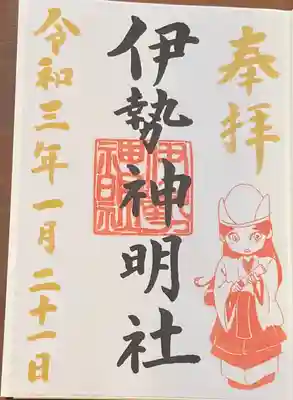 奉拝
伊勢神明社
伊勢神明社
令和三年一月二十一日